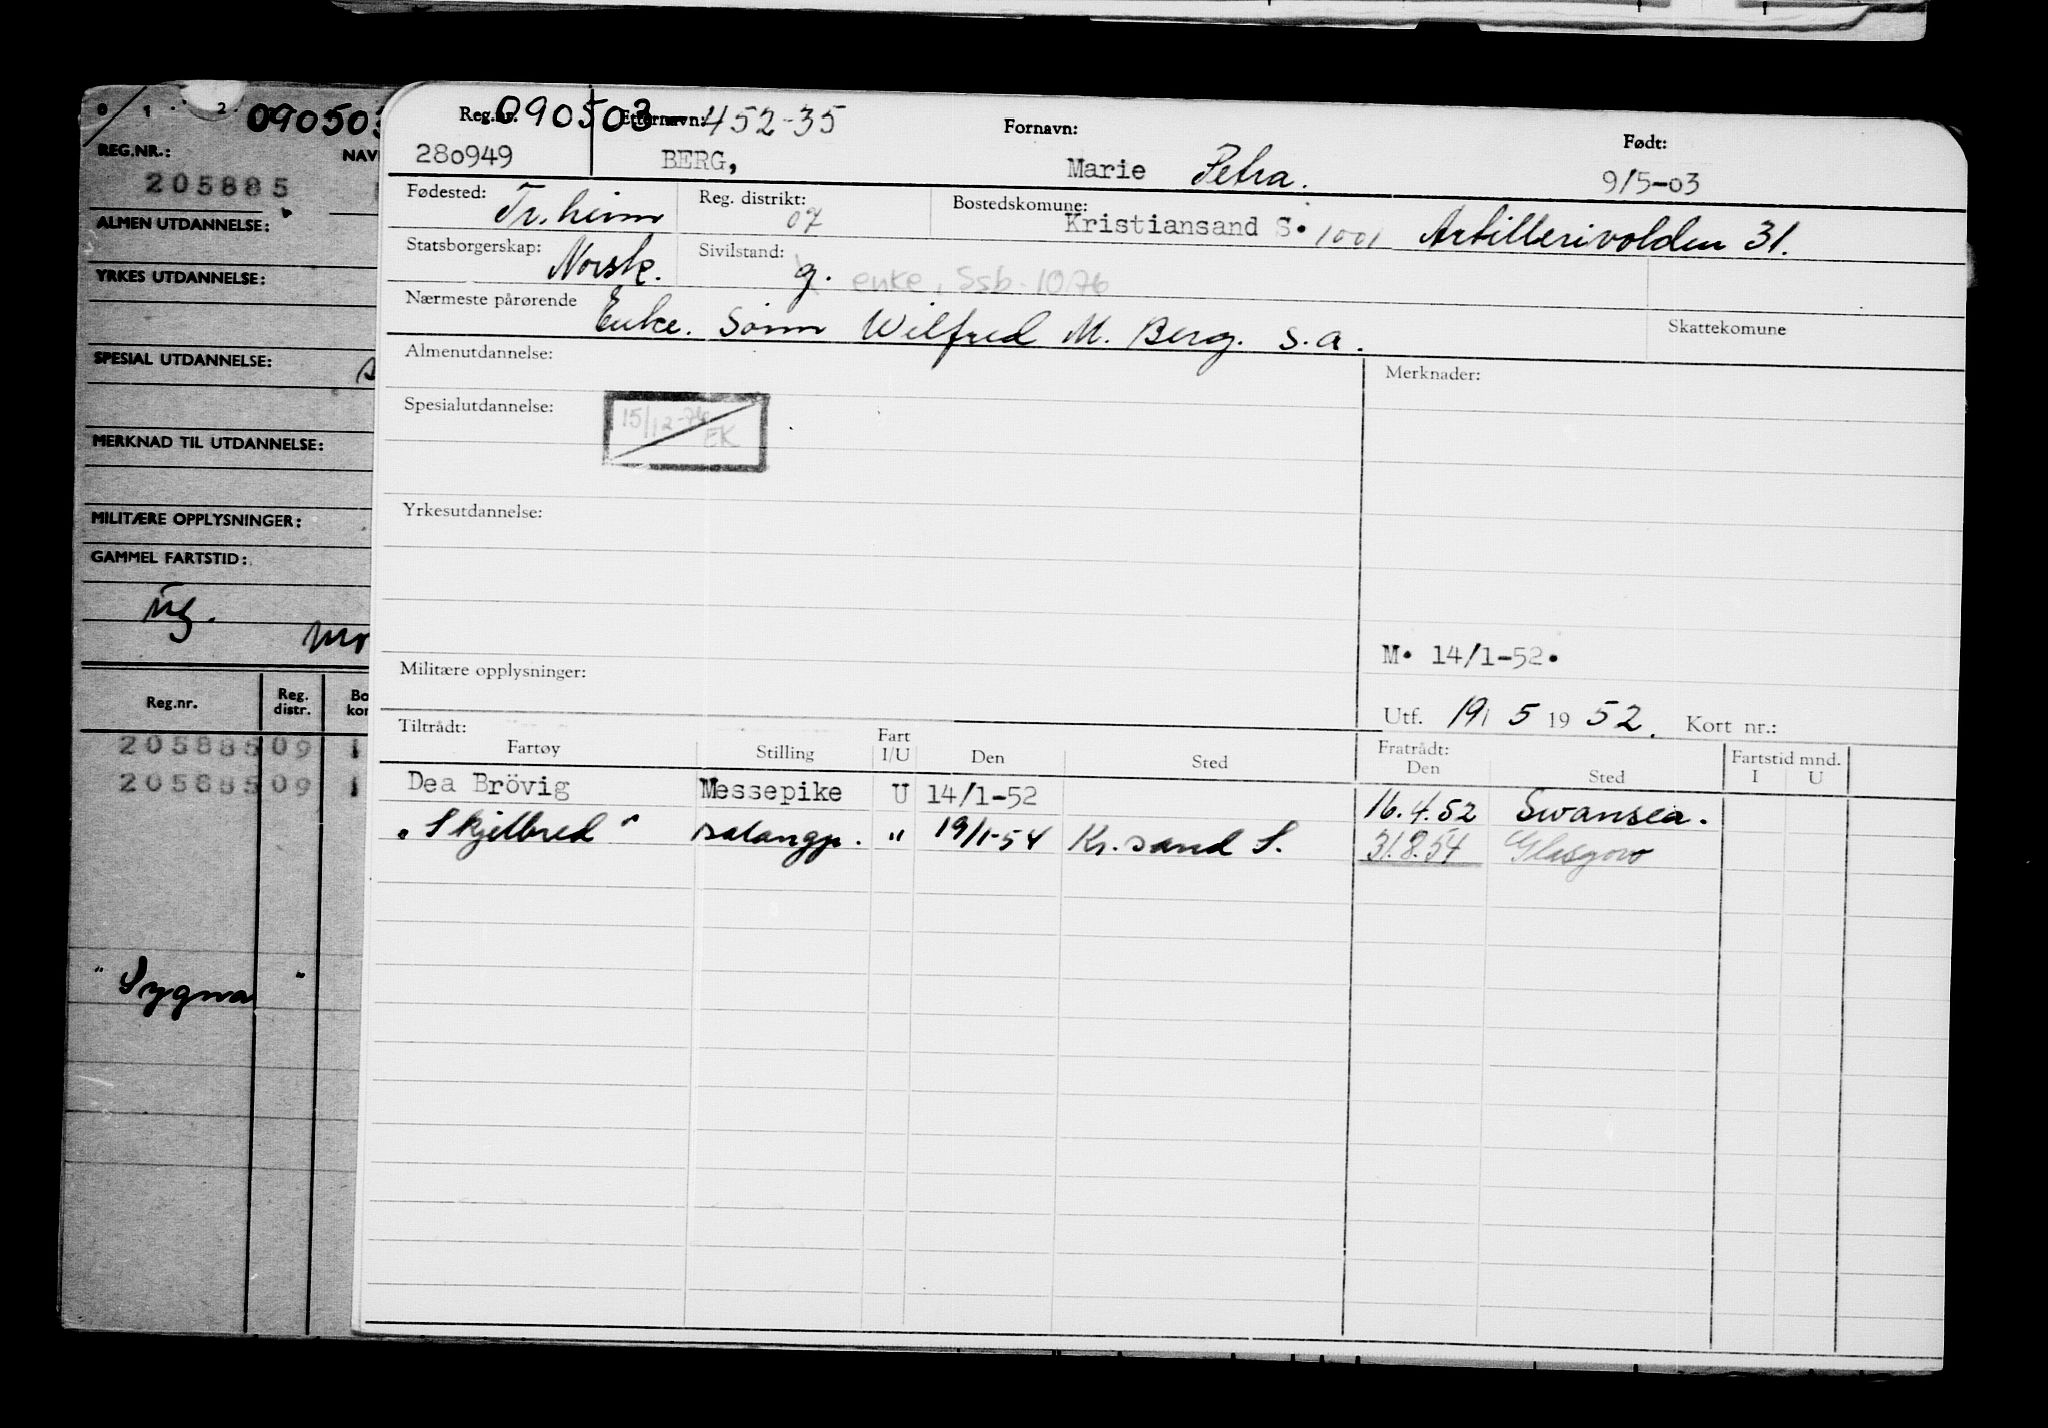 0 1 2
090503
REG.NR.: NAV
205885
ALMEN UTDANNELSE:
YRKES UTDANNELSE:
SPESIAL UTDANNELSE:
MERKNAD TIL UTDANNELSE:
MILITÆRE OPPLYSNINGER:
GAMMEL FARTSTID:
Reg.nr. Reg. distr. Bo kon
205885 09 1
205885 09 1
" Sygna "
Reg.nr. 090503 Etternavn: 452-35 Fornavn: Født:
280949 BERG, Marie Petra. 9/5-03
Fødested: Tr.heim Reg. distrikt: 07 Bostedskomune: Kristiansand S. 1001 Artillerivolden 31.
Statsborgerskap: Norsk. Sivilstand: g. enke, Ssb. 10.76
Nærmeste pårørende Enke. Sønn Wilfred M. Berg. s.a. Skattekomune
Almenutdannelse: Merknader:
Spesialutdannelse: 15/12-76 EK
Yrkesutdannelse:
M. 14/1-52.
Militære opplysninger:
Utf. 19/ 5 19 52. Kort nr.:
Tiltrådt: Fratrådt:
Fartøy Stilling Fart I/U Den Sted Den Sted Fartstid mnd. I U
Dea Brövig Messepike U 14/1-52 16.4.52 Swansea.
"Skjelbred" salongp. " 19/1-54 Kr.sand S. 31.8.54 Glasgow